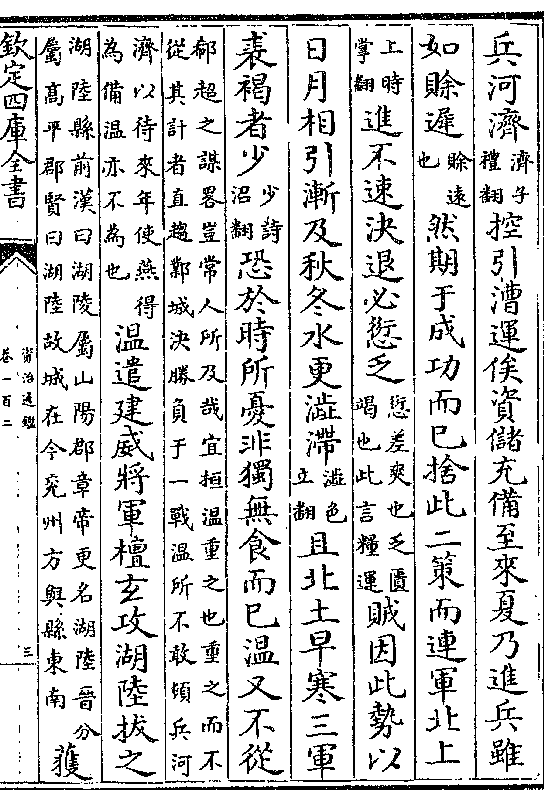 兵河濟濟子禮翻控引漕運俟資儲充備至來夏乃進兵雖
如賒遲賒遠也然期于成功而已捨此二策而連軍北上
上時掌翻進不速決退必愆乏愆差爽也乏匱竭也此言糧運賊因此勢以
日月相引漸及秋冬水更澁滯澁色立翻且北土早寒三軍
裘褐者少少詩沼翻恐於時所憂非獨無食而已溫又不從
郗超之謀畧豈常人所及哉宜桓溫重之也重之而不
從其計者直趨鄴城決勝負于一戰溫所不敢頓兵河
濟以待來年使燕得為備溫亦不為也溫遣建威將軍檀玄攻湖陸拔之
湖陸縣前漢曰湖陵屬山陽郡章帝更名湖陸晉分
屬高平郡賢曰湖陸故城在今兗州方與縣東南獲
欽定四庫全書
資治通鑑
卷一百二
三